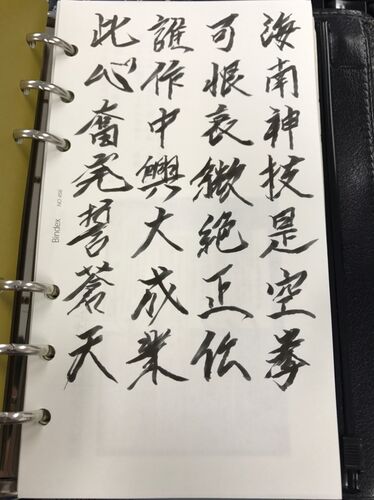 海南神技是空拳
可恨衰微絶正伝
誰作中興大成業
此心奮完誓蒼天
Bindex